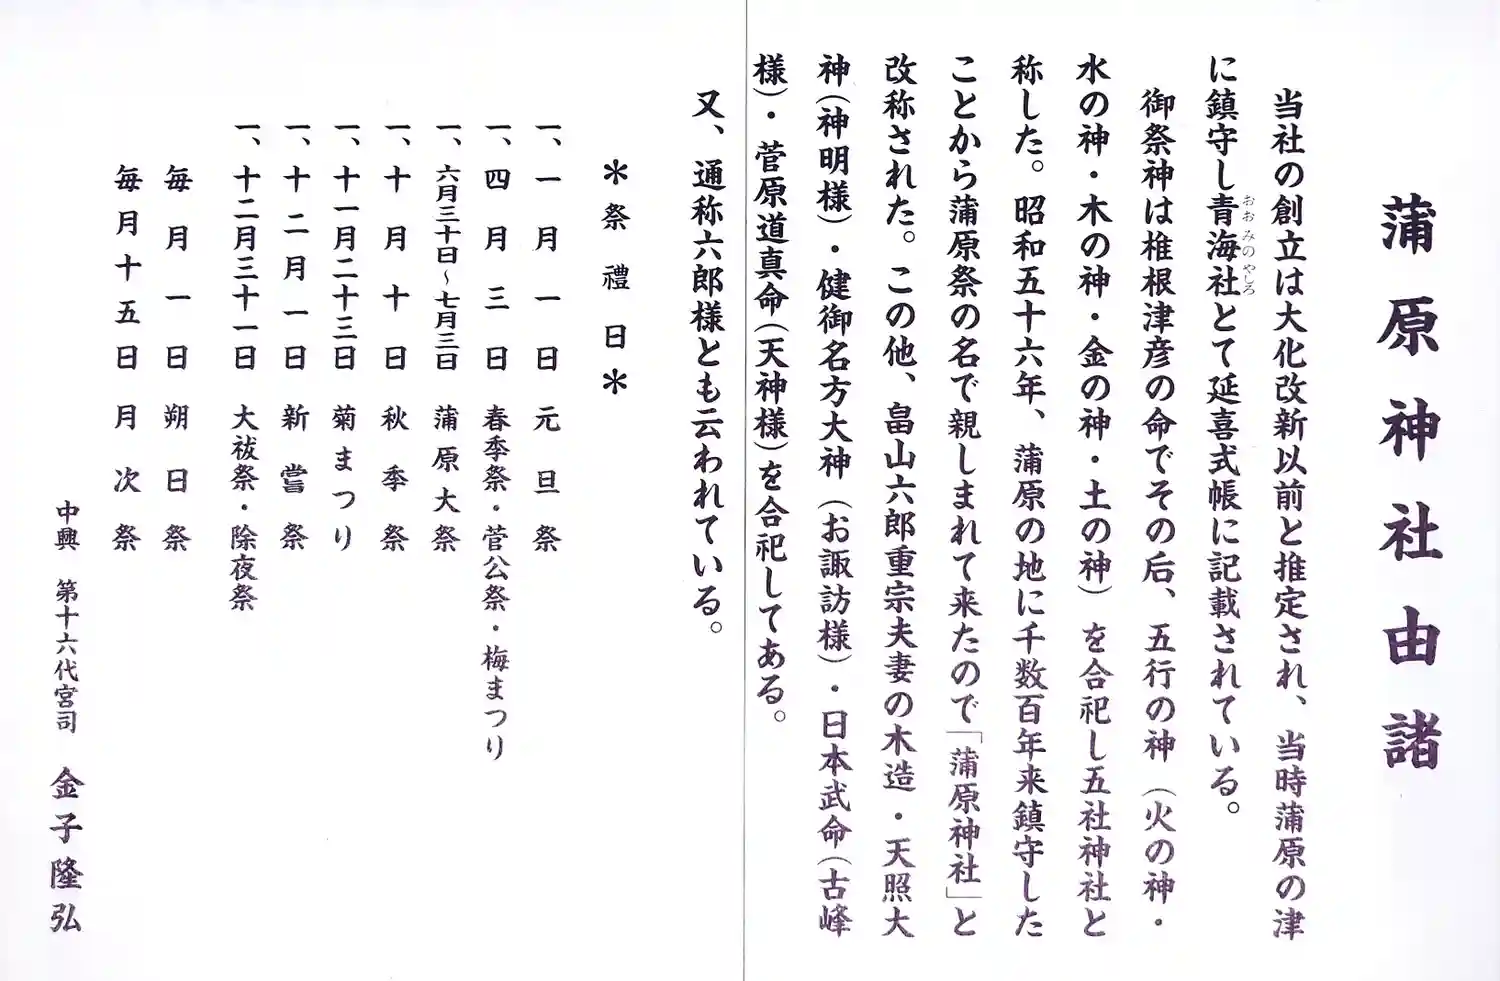 蒲原神社由諸
当社の創立は大化改新以前と推定され、当時蒲原の津
に鎮守し青海社とて延喜式帳に記載されている。
おおみのやしろ
御祭神は椎根津彦の命でその后、五行の神（火の神・
水の神・木の神・金の神・土の神）を合祀し五社神社と
称した。昭和五十六年、蒲原の地に千数百年来鎮守した
ことから蒲原祭の名で親しまれて来たので「蒲原神社」と
改称された。この他、畠山六郎重宗夫妻の木造・天照大
神(神明様)・健御名方大神（お諏訪様）・日本武命(古峰
様)・菅原道真命(天神様)を合祀してある。
又、通称六郎様とも云われている。
＊祭禮日＊
一、一月一日 元旦祭
一、四月三日 春季祭・菅公祭・梅まつり
一、六月三十日～七月三日 蒲原大祭
一、十月十日 秋季祭
一、十一月二十三日 菊まつり
一、十二月一日 新嘗祭
一、十二月三十一日 大祓祭・除夜祭
毎月一日 朔日祭
毎月十五日 月次祭
中興 第十六代宮司 金子隆弘